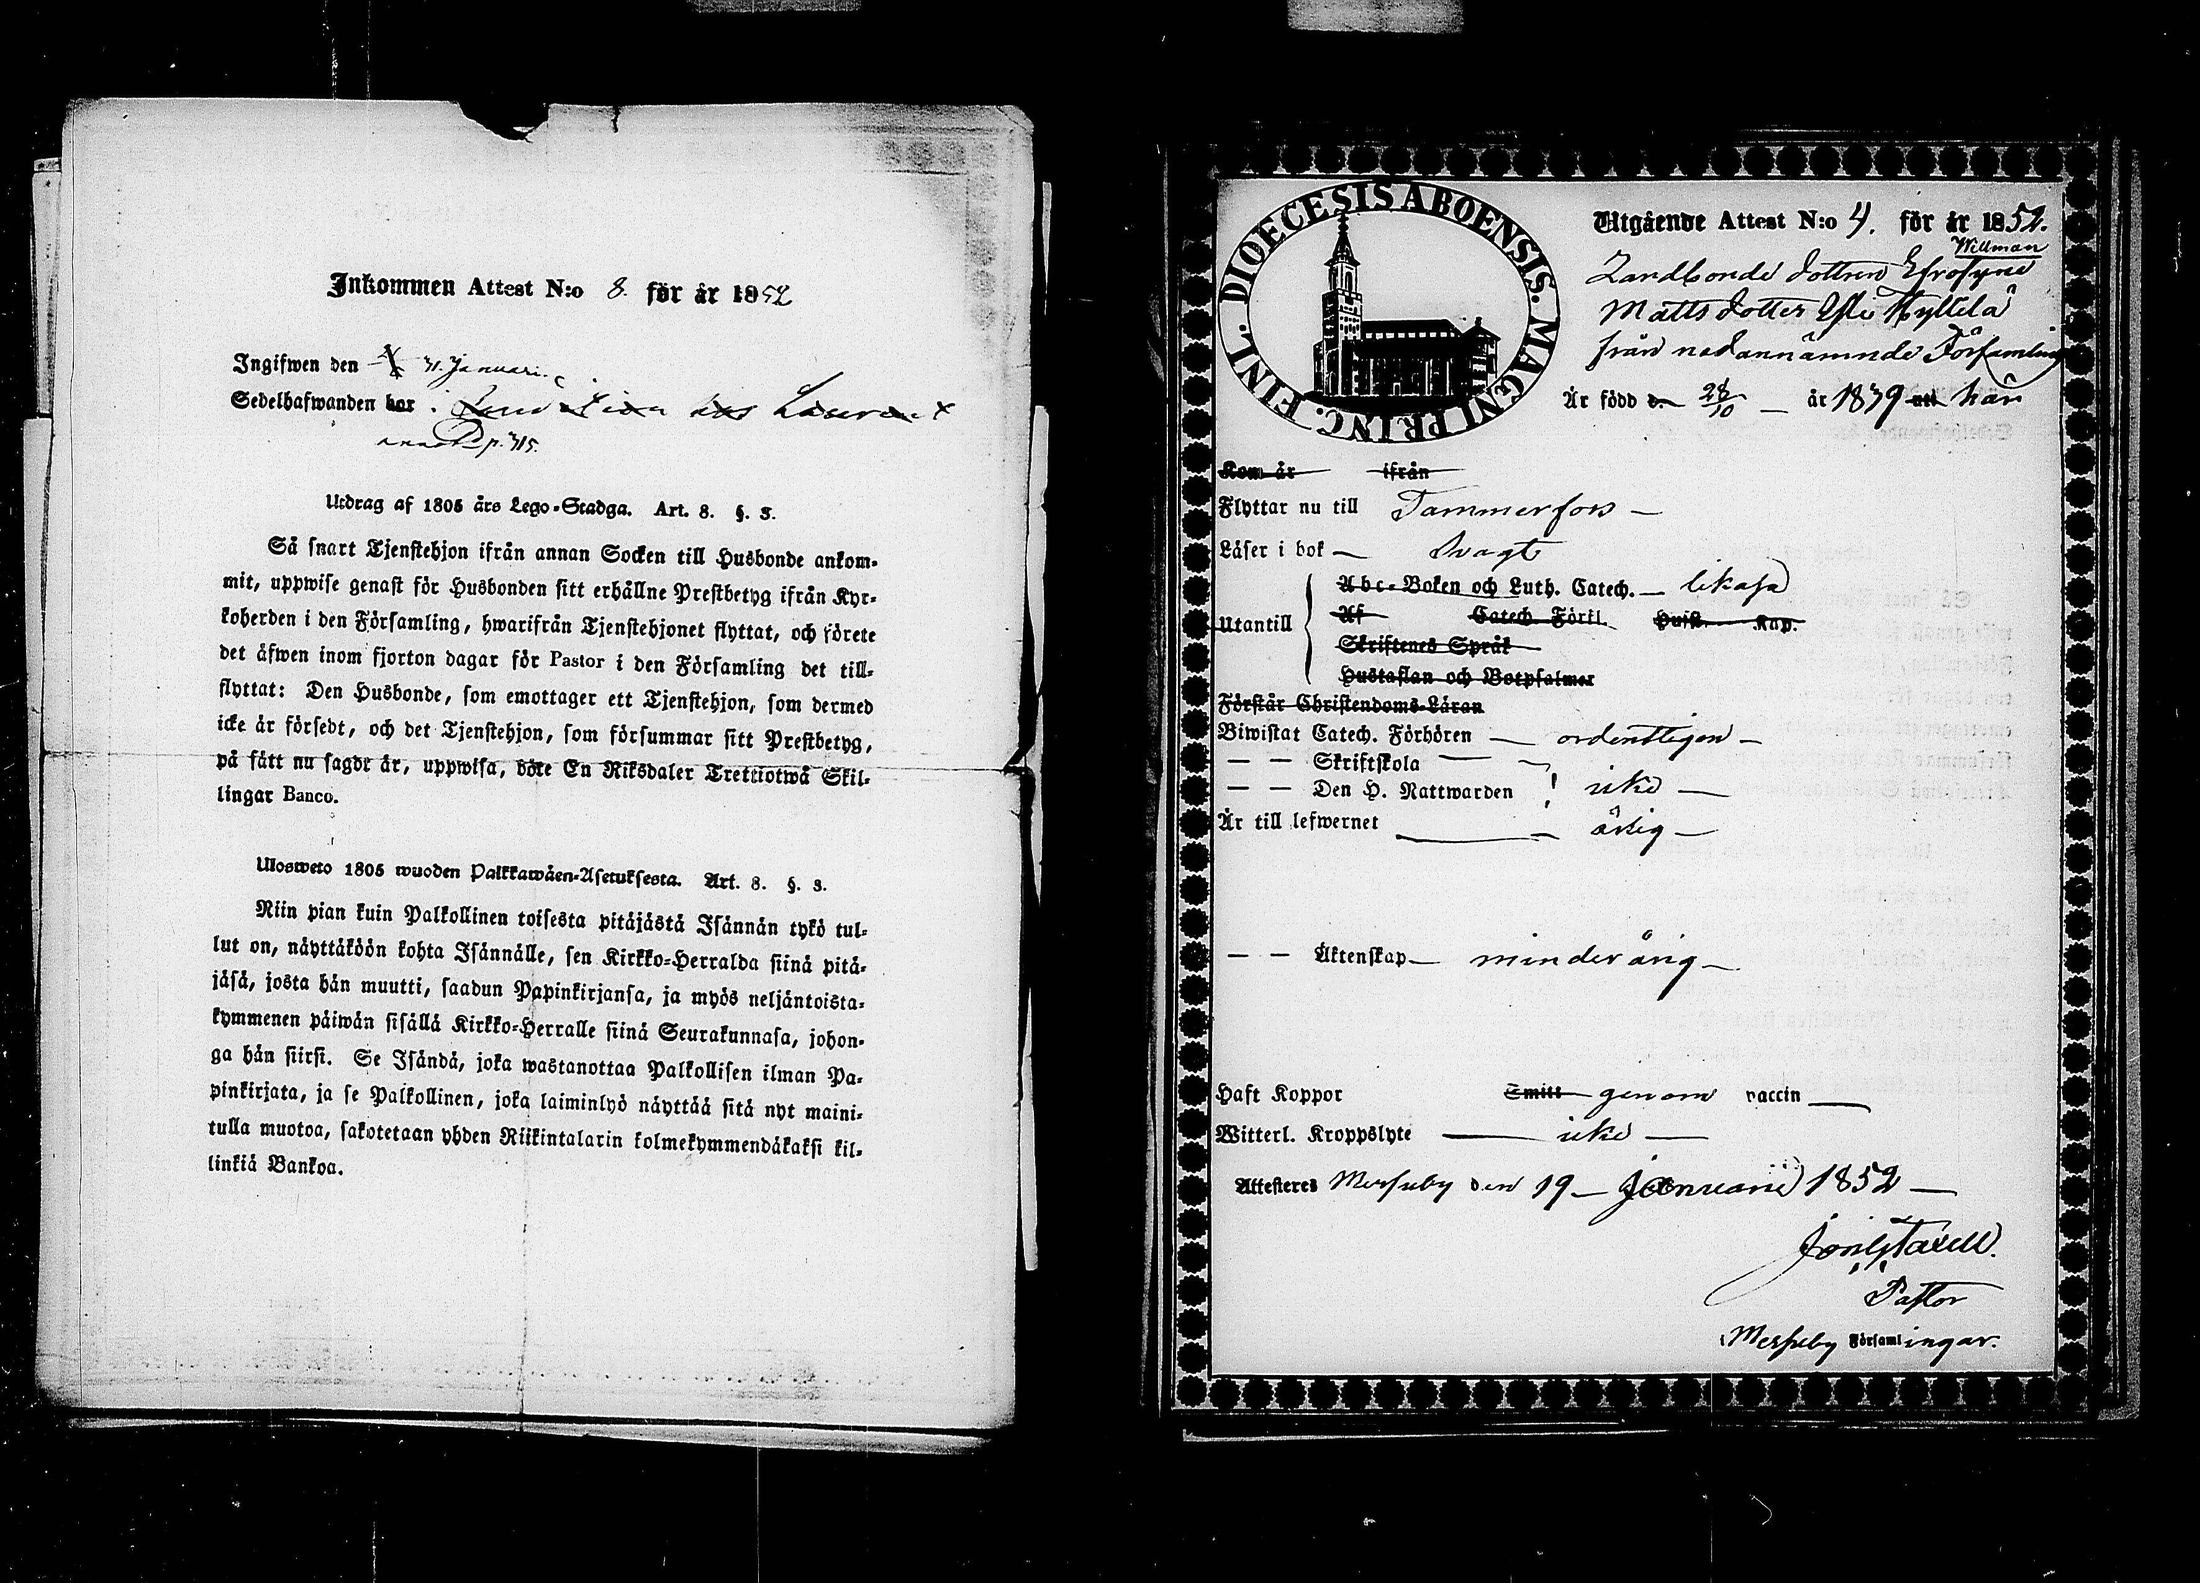 Inkommen Attest N:o 8. för år 1852
Ingifwen den 31 Januari.
Sedelhafwanden bor i
p. 315.
Utdrag af 1805 års Lego-Stadga. Art. 8. §. 3.
Så snart Tjenstehjon ifrån annan Socken till Husbonde ankom-
mit, uppwise genast för Husbonden sitt erhållne Prestbetyg ifrån Kyr-
koherden i den Församling, hwarifrån Tjenstehjonet flyttat, och förete
det äfwen inom fjorton dagar för Pastor i den Församling det till-
flyttat: Den Husbonde, som emottager ett Tjenstehjon, som dermed
icke är försedt, och det Tjenstehjon, som försummar sitt Prestbetyg,
på sätt nu sagdt är, uppwisa, böte En Riksdaler Trettiotwå Skil-
lingar Banco.
Ulosweto 1805 wuoden Palkkawäen-Asetuksesta. Art. 8. §. 3.
Niin pian kuin Palkollinen toisesta pitäjästä Isännän tykö tul-
lut on, näyttäköön kohta Isännälle, sen Kirkko-Herralda siinä pitä-
jäsä, josta hän muutti, saadun Papinkirjansa, ja myös neljäntoista-
kymmenen päiwän sisällä Kirkko-Herralle siinä Seurakunnasa, johon-
ga hän siirsi. Se Isändä, joka wastanottaa Palkollisen ilman Pa-
pinkirjata, ja se Palkollinen, joka laiminlyö näyttää sitä nyt maini-
tulla muotoa, sakotetaan yhden Riikintalarin kolmekymmendäkaksi kil-
linkiä Bankoa.
DIOECESIS ABOENSIS. MAGNI PRINC. FINL.
Utgående Attest N:o 4. för år 1852.
Willman
Landbonde dottren Efrosyne
Mattsdotter Efle Hyllelä
från nedannämnde Församling
Är född d. 28/10 år 1839 uti här
Kom år ifrån
Flyttar nu till Tammerfors
Läser i bok svagt
Abc-Boken och Luth. Catech. likaså
Utantill Af Catech. Förkl. Hust. Kap.
Skriftenes Språk
Hustaflan och Botpsalmer
Förstår Christendoms-Läran
Biwistat Catech. Förhören ordentligen
— — Skriftskola
— — Den H. Nattwarden icke
Är till lefwernet ärlig
— — Äktenskap minderårig
Haft Koppor Smitt genom vaccin
Witterl. Kroppslyte icke
Attesteres Messuby den 19 Januarii 1852
Tavell.
Pastor
i Messuby Församlingar.